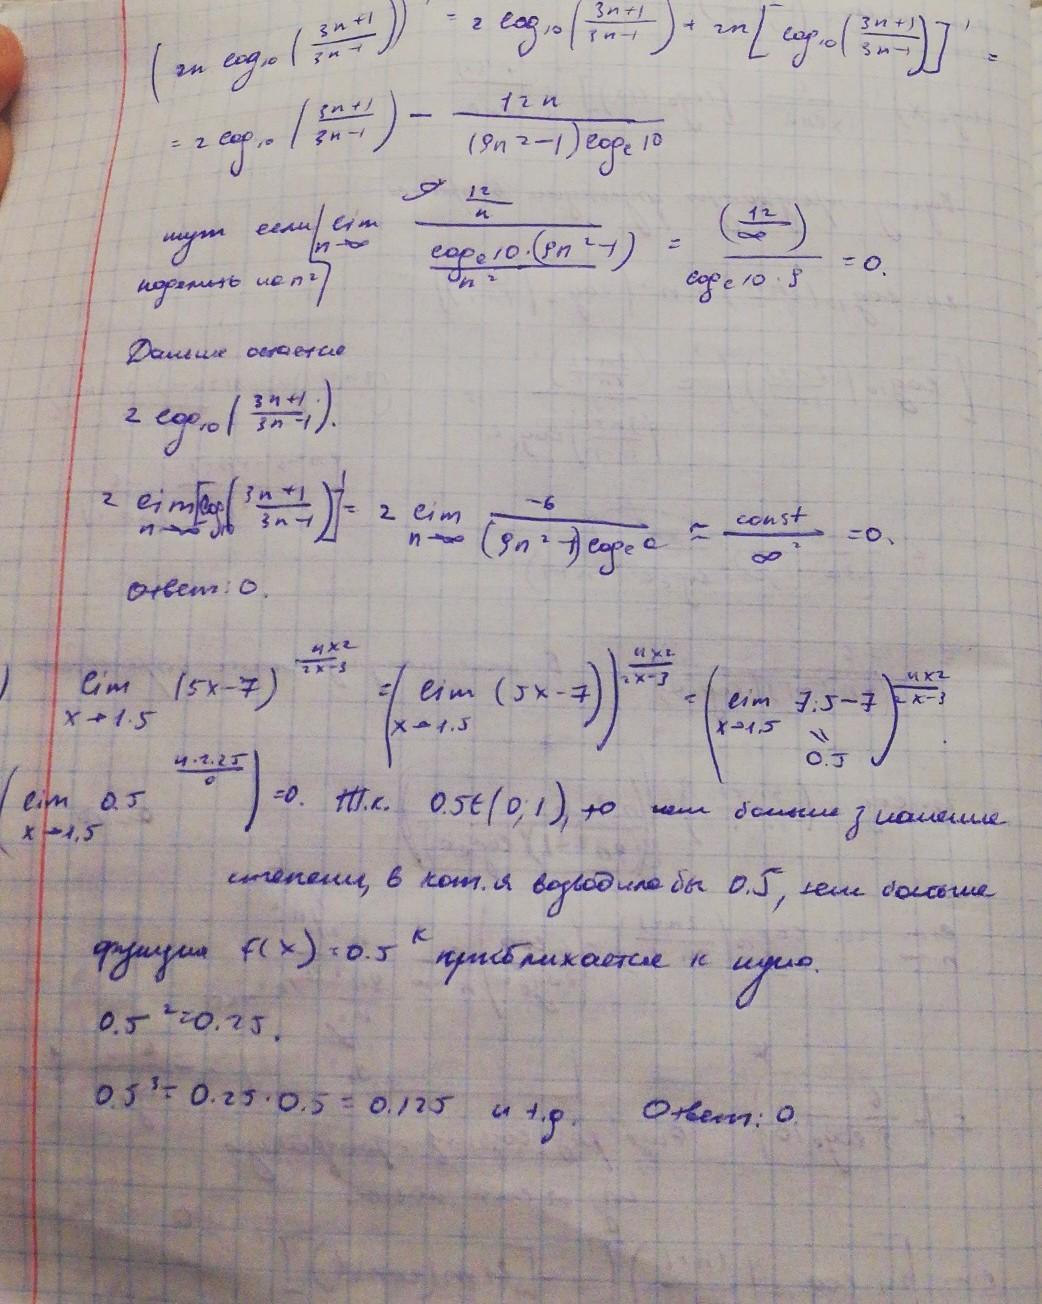 (2n log₁₀(3n+1/3n-1))' = 2 log₁₀(3n+1/3n-1) + 2n[log₁₀(3n+1/3n-1)]' =
= 2 log₁₀(3n+1/3n-1) - 12n/(9n²-1)logₑ10
тут если lim n→∞ 12/n / logₑ10·(9n²-1)/n² = (12/∞)/logₑ10·9 = 0.
поделить на n²
Дальше остаётся
2 log₁₀(3n+1/3n-1).
2 lim n→∞ [log₁₀(3n+1/3n-1)]' = 2 lim n→∞ -6/(9n²-1)logₑ ≈ const/∞² = 0.
Ответ: 0.
) lim x→1.5 (5x-7)^(4x2/2x-3) = (lim x→1.5 (5x-7))^(4x2/2x-3) = (lim x→1,5 7.5-7)^(4x2/2x-3)
0.5
(lim x→1,5 0.5^(4·2.25/0)) = 0. Т.к. 0.5∈(0;1), то чем больше значение
степени, в кот. я возводила бы 0.5, тем больше
функция f(x)=0.5^k приближается к нулю.
0.5²=0.25.
0.5³=0.25·0.5=0.125 и т.д. Ответ: 0.